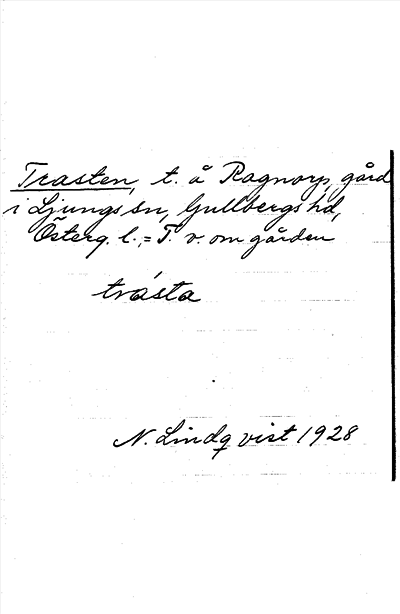 Trasten, t. å Ragnorp, gård
i Ljungs sn, Gullbergs hd,
Österg. l., = T. v. om gården
trásta
N. Lindqvist 1928